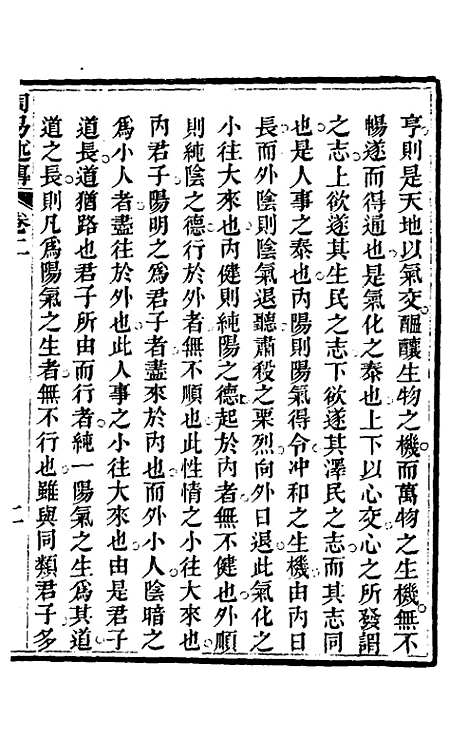 亨則是天地以氣交醞釀生物之機而萬物之生機無不
暢遂而得通也是氣化之泰也上下以心交心之所發謂
之志上欲遂其生民之志下欲遂其澤民之志而其志同
也是人事之泰也內陽則陽氣得令冲和之生機由內日
長而外陰則陰氣退聽肅殺之栗烈向外日退此氣化之
小往大來也內健則純陽之德起於內者無不健也外順
則純陰之德行於外者無不順也此性情之小往大來也
內君子陽明之為君子者盡來於內也而外小人陰暗之
為小人者盡往於外也此人事之小往大來也由是君子
道長道猶路也君子所由而行者純一陽氣之生為其道
道之長則凡為陽氣之生者無不行也雖與同類君子多
周易述傳 卷二
二